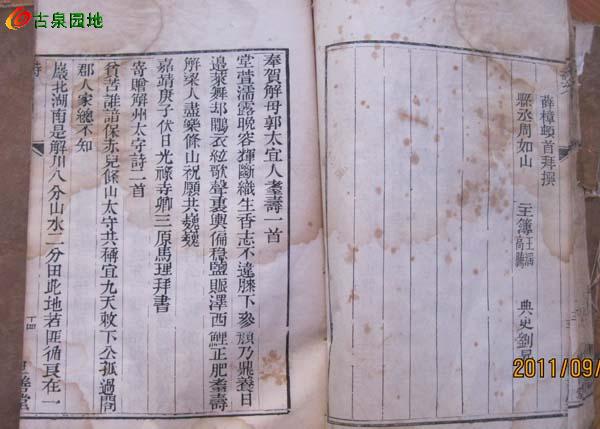 古泉园地
薛樟頓首拜撰
縣丞周如山
主簿王
高
典史劉
2011/09/
奉賀解母郭太宜人耋壽一首
堂萱濡露晩客揮斷織生香志不違膝下參 乃鼎養日
邉萊舞却鶉衣絃歌聲裏輿偏穏鹽賑澤西鯉正肥耋壽
解梁人盡樂條山祝願共巍巍
嘉靖庚子伏日光禄寺卿三原馬理拜書
寄贈解州太守詩二首
貧苦誰諳保赤兒條山太守共稱宜九天敕下公孤過問
郡人家總不知
巖北湖南是解川八分山水二分田此地若匪循良在一
詩
十四
善堂